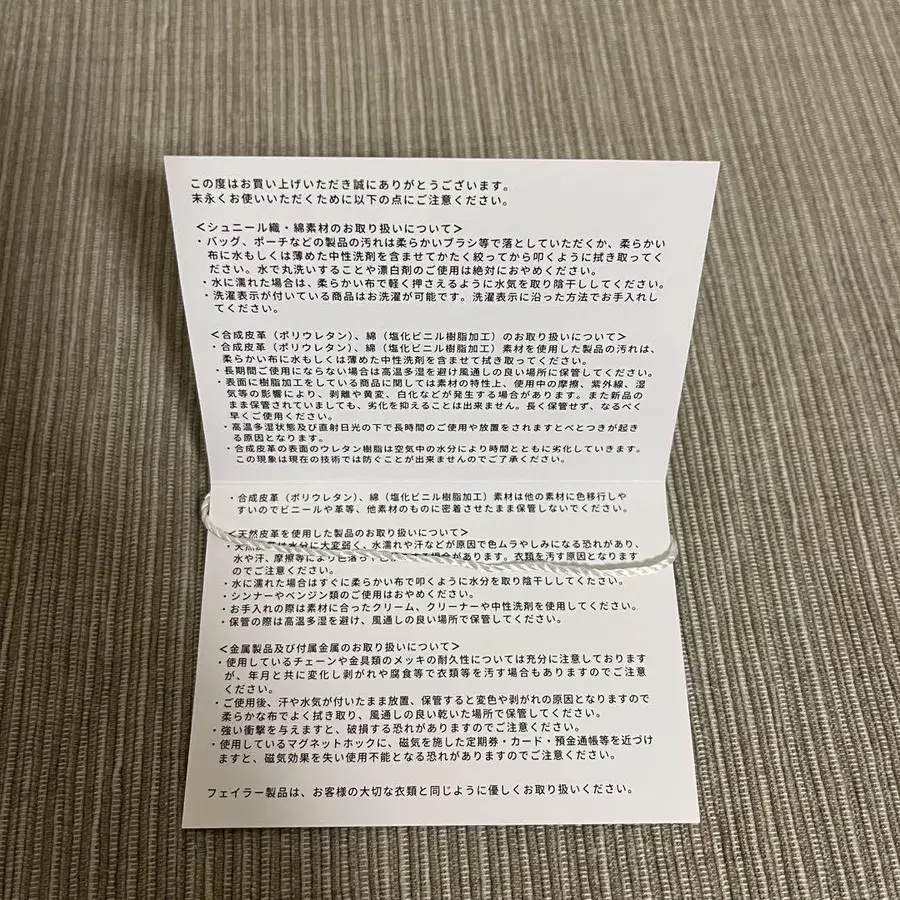 この度はお買い上げいただき誠にありがとうございます。
末永くお使いいただくために以下の点にご注意ください。
＜シュニール織・綿素材のお取り扱いについて＞
・バッグ、ポーチなどの製品の汚れは柔らかいブラシ等で落としていただくか、柔らかい
布に水もしくは薄めた中性洗剤を含ませてかたく絞ってから叩くように拭き取ってく
ださい。水で丸洗いすることや漂白剤のご使用は絶対におやめください。
・水に濡れた場合は、柔らかい布で軽く押さえるように水気を取り陰干ししてください。
・洗濯表示が付いている商品はお洗濯が可能です。洗濯表示に沿った方法でお手入れし
てください。
＜合成皮革（ポリウレタン）、綿（塩化ビニル樹脂加工）のお取り扱いについて＞
・合成皮革（ポリウレタン）、綿（塩化ビニル樹脂加工）素材を使用した製品の汚れは、
柔らかい布に水もしくは薄めた中性洗剤を含ませて拭き取ってください。
・長期間ご使用にならない場合は高温多湿を避け風通しの良い場所に保管してください。
・表面に樹脂加工をしている商品に関しては素材の特性上、使用中の摩擦、紫外線、湿
気等の影響により、剥離や黄変、白化などが発生する場合があります。また新品の
まま保管されていましても、劣化を抑えることは出来ません。長く保管せず、なるべく
早くご使用ください。
・高温多湿状態及び直射日光の下で長時間のご使用や放置をされますとべとつきが起き
る原因となります。
・合成皮革の表面のウレタン樹脂は空気中の水分により時間とともに劣化していきます。
この現象は現在の技術では防ぐことが出来ませんのでご了承ください。
・合成皮革（ポリウレタン）、綿（塩化ビニル樹脂加工）素材は他の素材に色移行しや
すいのでビニールや革等、他素材のものに密着させたまま保管しないでください。
＜天然皮革を使用した製品のお取り扱いについて＞
・天然 は水分に大変弱く、水濡れや汗などが原因で色ムラやしみになる恐れがあり、
水や汗、摩擦等により 場合があります。衣類を汚す原因となります
のでご注意ください。
・水に濡れた場合はすぐに柔らかい布で叩くように水分を取り陰干ししてください。
・シンナーやベンジン類のご使用はおやめください。
・お手入れの際は素材に合ったクリーム、クリーナーや中性洗剤を使用してください。
・保管の際は高温多湿を避け、風通しの良い場所で保管してください。
＜金属製品及び付属金属のお取り扱いについて＞
・使用しているチェーンや金具類のメッキの耐久性については充分に注意しております
が、年月と共に変化し剥がれや腐食等で衣類等を汚す場合もありますのでご注意
ください。
・ご使用後、汗や水気が付いたまま放置、保管すると変色や剥がれの原因となりますので
柔らかな布でよく拭き取り、風通しの良い乾いた場所で保管してください。
・強い衝撃を与えますと、破損する恐れがありますのでご注意ください。
・使用しているマグネットホックに、磁気を施した定期券・カード・預金通帳等を近づけ
ますと、磁気効果を失い使用不能となる恐れがありますのでご注意ください。
フェイラー製品は、お客様の大切な衣類と同じように優しくお取り扱いください。